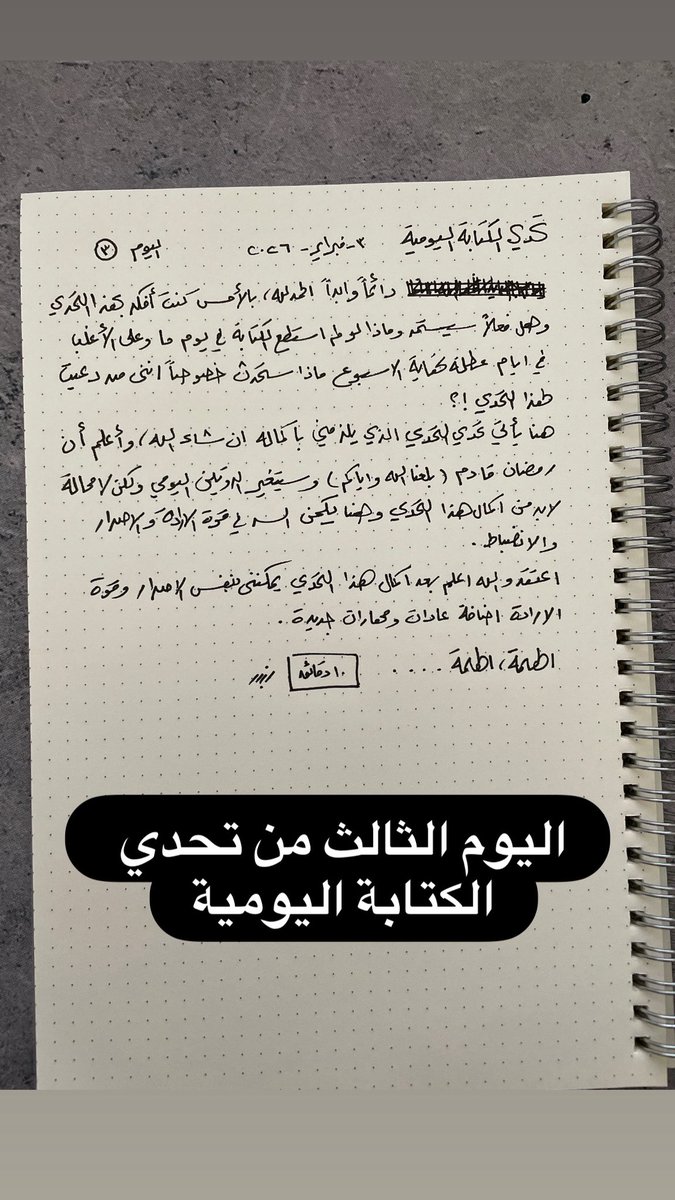 تحدي الكتابة اليومية ٣-فبراير-٢٠٢٦ اليوم ٣
دائماً وابداً الحمدلله، بالأمس كنت أفكر بهذا التحدي
وهل فعلاً سيستمر وماذا لو لم استطع الكتابة في يوم ما وعلى الأغلب
في ايام عطلة نهاية الاسبوع ماذا سيحدث خصوصاً انني من دعيت
لهذا التحدي !؟
هنا يأتي تحدي التحدي الذي يلزمني باكماله ان شاء الله، وأعلم أن
رمضان قادم (بلغنا الله واياكم) وسيتغير الروتين اليومي ولكن لامحالة
لابد من اكمال هذا التحدي وهنا يكمن السر في قوة الارادة والاصرار
والانضباط.
اعتقد والله اعلم بعد اكمال هذا التحدي يمكنني بنفس الاصرار وقوة
الارادة اضافة عادات ومهارات جديدة.
الهمة، الهمة ....
١٠ دقائق
اليوم الثالث من تحدي
الكتابة اليومية